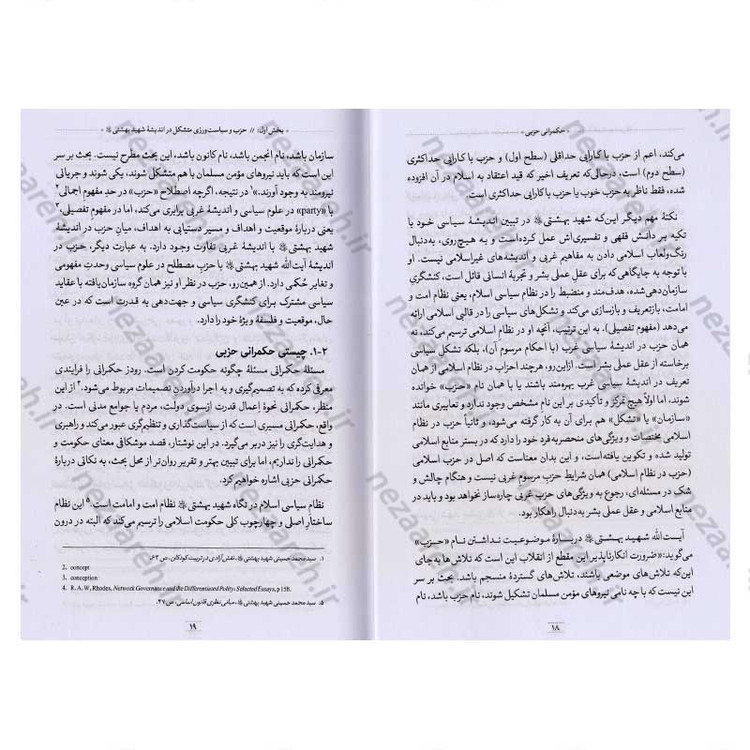 «حکمرانی حزبی»
می‌کند، اعم از حزب با کارایی حداقلی (سطح اول) و حزب با کارایی حداکثری
(سطح دوم) است، درحالی‌که تعریف اخیر که قید اعتقاد به اسلام در آن افزوده
شده، فقط ناظر به حزب خوب یا حزب با کارایی حداکثری است.
نکتهٔ مهم دیگر این‌که شهید بهشتی در تبیین اندیشهٔ سیاسی خود با
تکیه بر دانش فقهی و تفسیری‌اش عمل کرده‌است و به هیچ‌روی، به‌دنبال
رنگ‌ولعاب اسلامی دادن به مفاهیم غربی و اندیشه‌های غیراسلامی نیست. او
با توجه به جایگاهی که برای عقل عملی بشر و تجربهٔ انسانی قائل است، کنشگریِ
سازمان‌دهی‌شده، هدف‌مند و منضبط را در نظام سیاسی اسلام، یعنی نظام امت و
امامت، بازتعریف و بازسازی می‌کند و تشکل‌های سیاسی را در قالبی اسلامی ارائه
می‌دهد (مفهوم تفصیلی). به این ترتیب، آنچه او در نظام اسلامی ترسیم می‌کند، نه
همان حزب در اندیشهٔ سیاسی غرب (با احکام مرسوم آن)، بلکه تشکل سیاسی
برخاسته از عقل عملی بشر است. ازاین‌رو، هرچند احزاب در نظام اسلامی از همان
تعریف در اندیشهٔ سیاسی غرب بهره‌مند باشند یا با همان نام «حزب» خوانده
شوند، اما اولاً هیچ تمرکز و تأکیدی بر این نام مشخص وجود ندارد و تعابیری مانند
«سازمان» یا «تشکل» هم برای آن به کار گرفته می‌شود، و ثانیاً حزب در نظام
اسلامی مختصات و ویژگی‌های منحصربه‌فرد خود را دارد که در بستر منابع اسلامی
تولید شده و تکوین یافته‌است، و این بدان معناست که اصل در حزب اسلامی
(حزب در نظام اسلامی) همان شرایطِ حزبِ مرسوم غربی نیست و هنگام چالش و
شک در مسئله‌ای، رجوع به ویژگی‌های حزب غربی چاره‌ساز نخواهد بود و باید در
منابع اسلامی و عقل عملی بشر به‌دنبال راهکار بود.
آیت‌الله شهید بهشتی دربارهٔ موضوعیت نداشتن نام «حزب»
می‌گوید: «ضرورت انکارناپذیر این مقطع از انقلاب این است که تلاش‌ها به‌جای
این‌که تلاش‌های موضعی باشند، تلاش‌های گستردهٔ منسجم باشد. بحث بر سر
این نیست که با چه نامی نیروهای مؤمن مسلمان تشکیل شوند، نام حزب باشد، نام
۱۸
«بخش اول: // حزب و سیاست‌ورزی متشکل در اندیشهٔ شهید بهشتی»
سازمان باشد، نام انجمن باشد، نام کانون باشد، این بحث مطرح نیست. بحث بر سر
این است که باید نیروهای مؤمن مسلمان با هم متشکل شوند، یکی شوند و جریانی
نیرومند به وجود آورند.»۱ در نتیجه، اگرچه اصطلاح «حزب» در حدِ مفهوم اجمالی۲
با «party» در علوم سیاسی و اندیشهٔ غربی برابری می‌کند، اما در مفهومِ تفصیلی،۳
یعنی دربارهٔ موقعیت و اهداف و مسیر دستیابی به اهداف، میان حزب در اندیشهٔ
شهید بهشتی با اندیشهٔ غربی تفاوت وجود دارد. به عبارت دیگر، حزب در
اندیشهٔ آیت‌الله شهید بهشتی با حزبِ مصطلح در علوم سیاسی وحدتِ مفهومی
و تغایر حُکمی دارد. از همین‌رو، حزب در نظر او نیز همان گروه سازمان‌یافته با عقاید
سیاسی مشترک برای کنشگری سیاسی و جهت‌دهی به قدرت است که در عین
حال، موقعیت و فلسفهٔ ویژهٔ خود را دارد.
۱-۲. چیستی حکمرانی حزبی
مسئلهٔ حکمرانی مسئلهٔ چگونه حکومت کردن است. رودز حکمرانی را فرایندی
معرفی کرده که به تصمیم‌گیری و به اجرا درآوردن تصمیمات مربوط می‌شود.۴ از این
منظر، حکمرانی نحوهٔ اِعمال قدرت ازسوی دولت، مردم یا جوامع مدنی است. در
واقع، حکمرانی مسیری است که از سیاست‌گذاری و تنظیم‌گری عبور می‌کند و راهبری
و هدایت‌گری را نیز دربر می‌گیرد. در این نوشتار، قصد موشکافی معنای حکومت و
حکمرانی را نداریم، اما برای تبیین بهتر و تقریر روان‌تر از محل بحث، به نکاتی دربارهٔ
حکمرانی حزبی اشاره خواهیم کرد.
نظام سیاسی اسلام در نگاه شهید بهشتی نظام امت و امامت است.۵ این نظام
ساختارِ اصلی و چهارچوب کلی حکومت اسلامی را ترسیم می‌کند که البته در درون
۱. سید محمد حسینی شهید بهشتی، نقش آزادی در تربیت کودکان، ص ۶۳.
2. concept
3. conception
4. R. A. W. Rhodes, Network Governance and the Differentiated Polity: Selected Essays, p 158.
۵. سید محمد حسینی شهید بهشتی، مبانی نظری قانون اساسی، ص ۴۷.
۱۹
nezaareh.ir